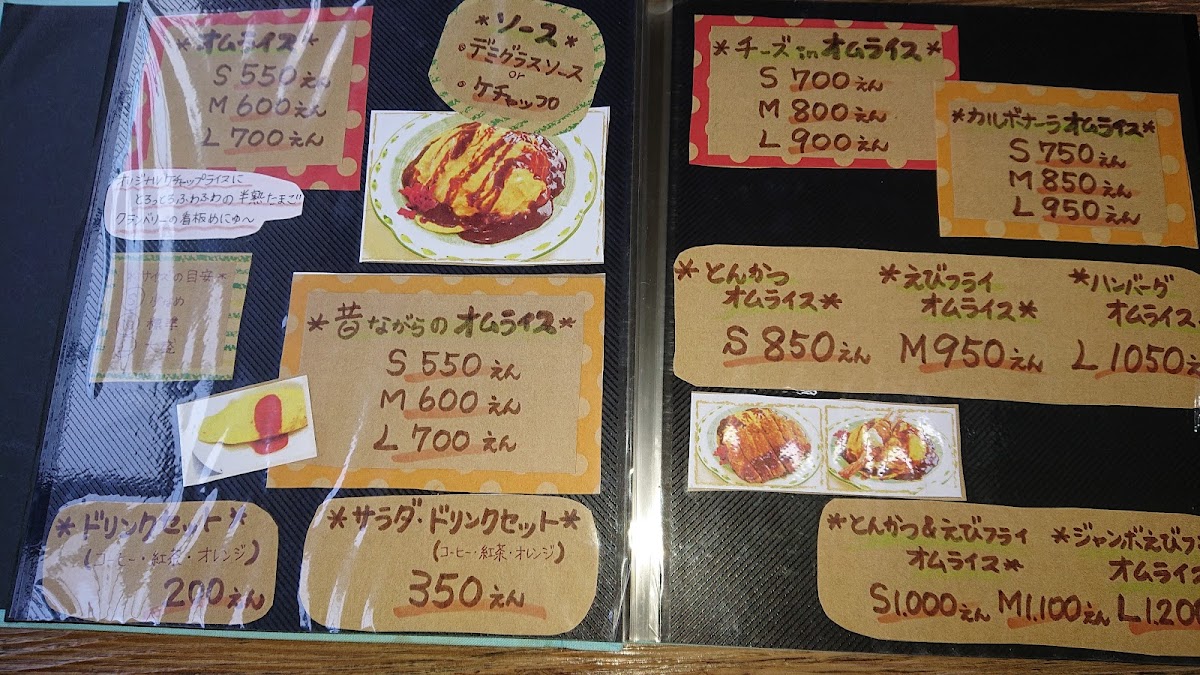 *オムライス*
S 550えん
M 600えん
L 700えん
*ソース*
・デミグラスソース
or
・ケチャップ
オリジナルケチャップライスに
とろっとろふわふわの半熟たまご
クランベリーの看板めにゅ〜
*サイズの目安*
S 少なめ
M 標準
L 大盛
*昔ながらのオムライス*
S 550えん
M 600えん
L 700えん
*ドリンクセット*
(コーヒー・紅茶・オレンジ)
200えん
*サラダ・ドリンクセット*
(コーヒー・紅茶・オレンジ)
350えん
*チーズinオムライス*
S 700えん
M 800えん
L 900えん
*カルボナーラオムライス*
S 750えん
M 850えん
L 950えん
*とんかつ
オムライス*
*えびフライ
オムライス*
*ハンバーグ
オムライス
S 850えん M 950えん L 1050え
*とんかつ&えびフライ
オムライス*
*ジャンボえびフ
オムライス
S1.000えん M1.100えん L1.200